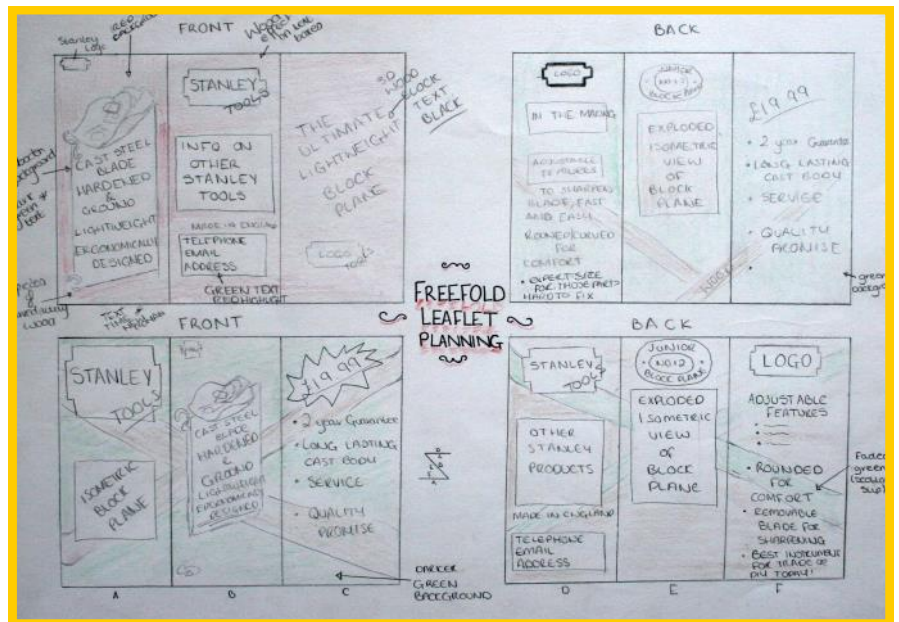 FRONT
Stanley
Logo
RED
BACKGROUND
STANLEY
TOOLS
CAST STEEL
BLADE
HARDENED
&
GROUND
LIGHTWEIGHT
ERGONOMICALLY
DESIGNED
INFO ON
OTHER
STANLEY
TOOLS
MADE IN ENGLAND
TELEPHONE
EMAIL
ADDRESS
GREEN TEXT
RED HIGHLIGHT
THE
ULTIMATE
LIGHTWEIGHT
BLOCK
PLANE
3D
WOOD
BLOCK
TEXT
BLACK
LOGO
TOOLS
BACK
LOGO
IN THE MAKING
ADJUSTABLE
FEATURES
TO SHARPEN
BLADE, FAST
AND EASY
ROUNDED/CURVED
FOR
COMFORT
• EXPERT SIZE
FOR THOSE PARTS
HARD TO FIX
JUNIOR
NO12
BLOCK PLANE
EXPLODED
ISOMETRIC
VIEW
OF
BLOCK
PLANE
£19.99
• 2 year Guarantee
• LONG LASTING
CAST BODY
• SERVICE
• QUALITY
PROMISE
FREEFOLD
LEAFLET
PLANNING
FRONT
STANLEY
TOOLS
ISOMETRIC
BLOCK
PLANE
CAST STEEL
BLADE
HARDENED
&
GROUND
LIGHTWEIGHT
ERGONOMICALLY
DESIGNED
£19.99
• 2 year Guarantee
• LONG LASTING
CAST BODY
• SERVICE
• QUALITY
PROMISE
A
B
C
DARKER
GREEN
BACKGROUND
BACK
STANLEY
TOOLS
OTHER
STANLEY
PRODUCTS
MADE IN ENGLAND
TELEPHONE
EMAIL
ADDRESS
JUNIOR
NO12
BLOCK PLANE
EXPLODED
ISOMETRIC
VIEW
OF
BLOCK
PLANE
LOGO
ADJUSTABLE
FEATURES
• ROUNDED
FOR
COMFORT
• REMOVABLE
BLADE FOR
SHARPENING
• BEST INSTRUMENT
FOR TRADE OR
DIY TODAY!
D
E
F